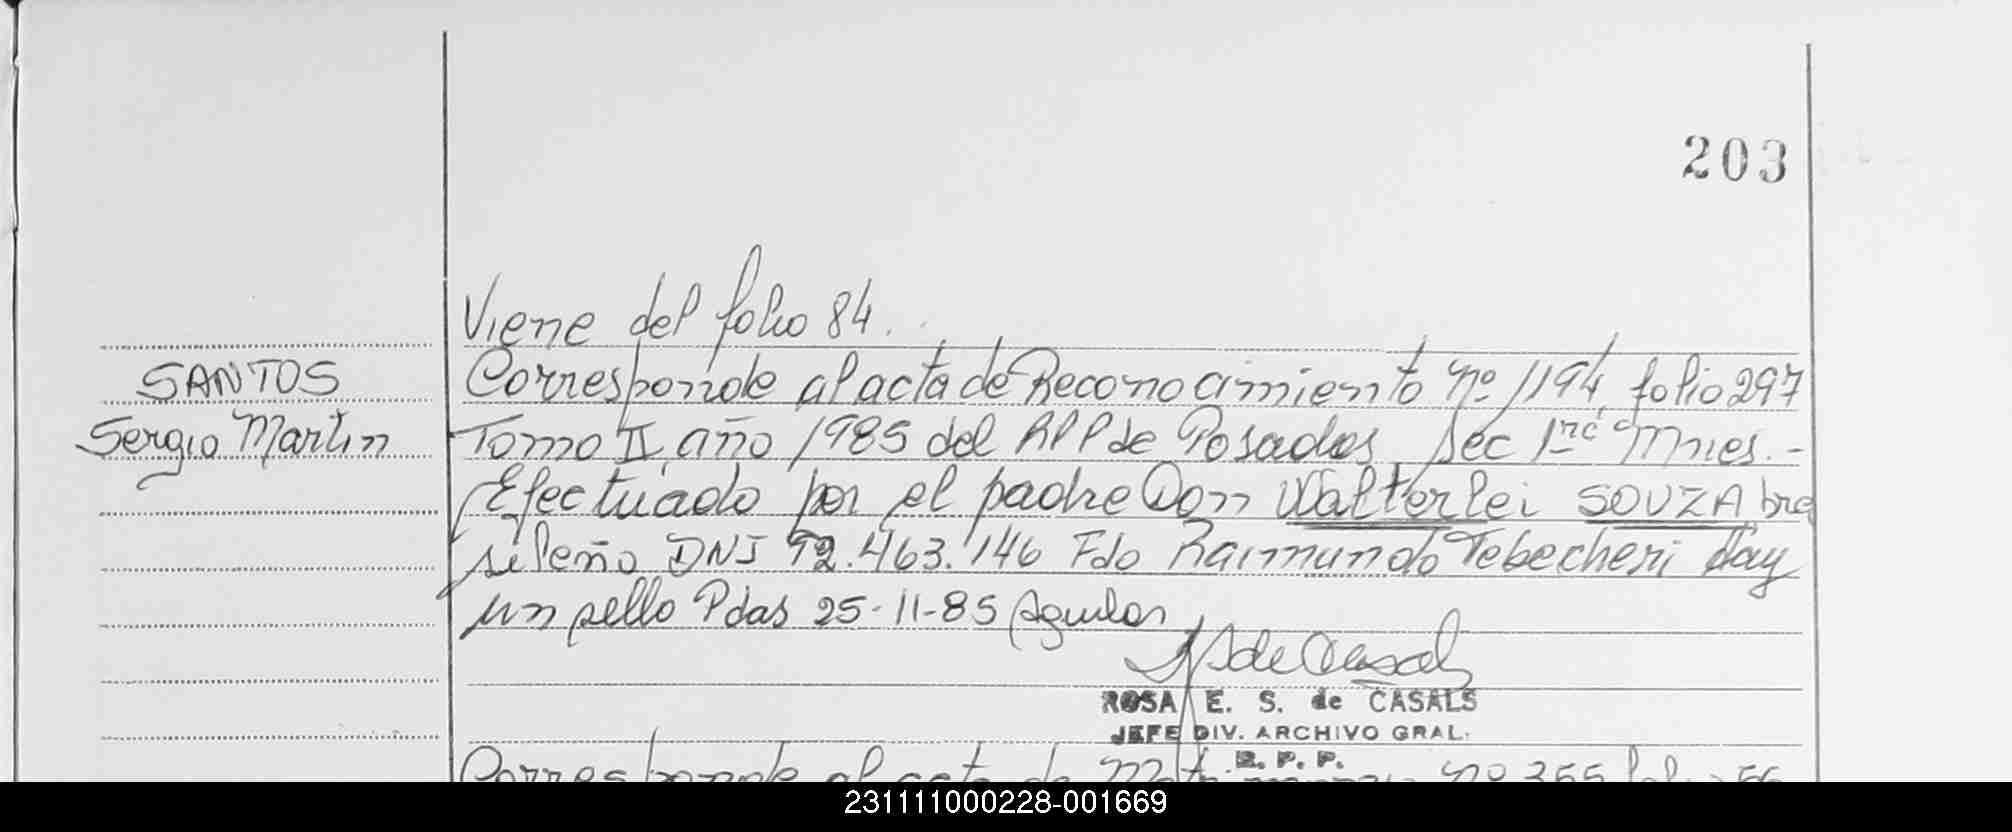 203
Viene del folio 84.
SANTOS
Sergio Martin
Corresponde al acta de Reconocimiento Nº 1194, folio 297
Tomo II, año 1985 del RPP de Posadas, Sec 1ra Mnes.-
Efectuado por el padre Don Walterlei SOUZA bra
sileño DNI 92.463.146 Fdo Raimundo Tebecheri Hay
un sello Pdas 25-11-85 Aguilar
S de Casals
ROSA E. S. de CASALS
JEFE DIV. ARCHIVO GRAL.
R. P. P.
Corresponde al acta de Nº 355
231111000228-001669